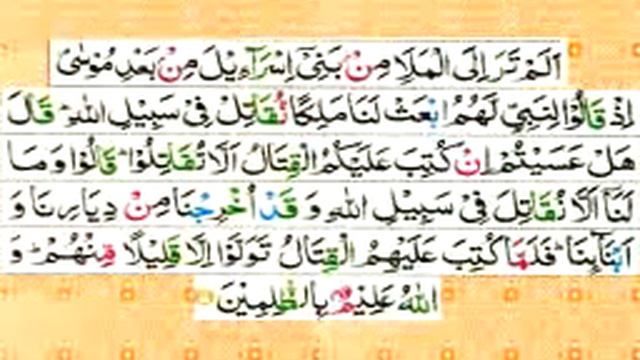 اَلَمْ تَرَ اِلَى الْمَلَاِ مِنْۢ بَنِیْۤ اِسْرَآءِیْلَ مِنْۢ بَعْدِ مُوْسٰی
اِذْ قَالُوْا لِنَبِیٍّ لَّهُمُ ابْعَثْ لَنَا مَلِكًا نُّقَاتِلْ فِیْ سَبِیْلِ اللّٰهِ ؕ قَالَ
هَلْ عَسَیْتُمْ اِنْ كُتِبَ عَلَیْكُمُ الْقِتَالُ اَلَّا تُقَاتِلُوْا ؕ قَالُوْا وَ مَا
لَنَاۤ اَلَّا نُقَاتِلَ فِیْ سَبِیْلِ اللّٰهِ وَ قَدْ اُخْرِجْنَا مِنْ دِیَارِنَا وَ
اَبْنَآىِٕنَا ؕ فَلَمَّا كُتِبَ عَلَیْهِمُ الْقِتَالُ تَوَلَّوْا اِلَّا قَلِیْلًا مِّنْهُمْ ؕ وَ
اللّٰهُ عَلِیْمٌۢ بِالظّٰلِمِیْنَ